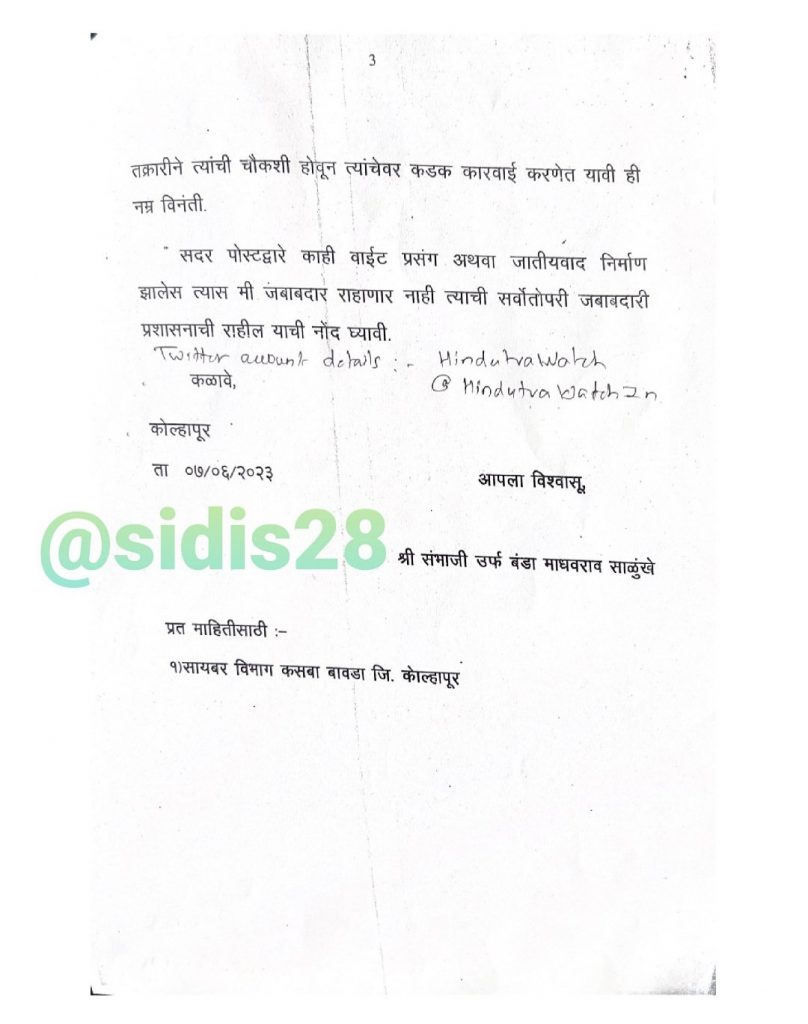 3
तक्रारीने त्यांची चौकशी होवून त्यांचेवर कडक कारवाई करणेत यावी ही
नम्र विनंती.
सदर पोस्टद्वारे काही वाईट प्रसंग अथवा जातीयवाद निर्माण
झालेस त्यास मी जबाबदार राहाणार नाही त्याची सर्वोतोपरी जबाबदारी
प्रशासनाची राहील याची नोंद घ्यावी.
Twitter account details :- Hindutva Watch
कळावे,
@HindutvaWatchIn
कोल्हापूर
ता ०७/०६/२०२३
आपला विश्वासू,
@sidis28
श्री संभाजी उर्फ बंडा माधवराव साळुंखे
प्रत माहितीसाठी :–
१)सायबर विभाग कसबा बावडा जि. कोल्हापूर